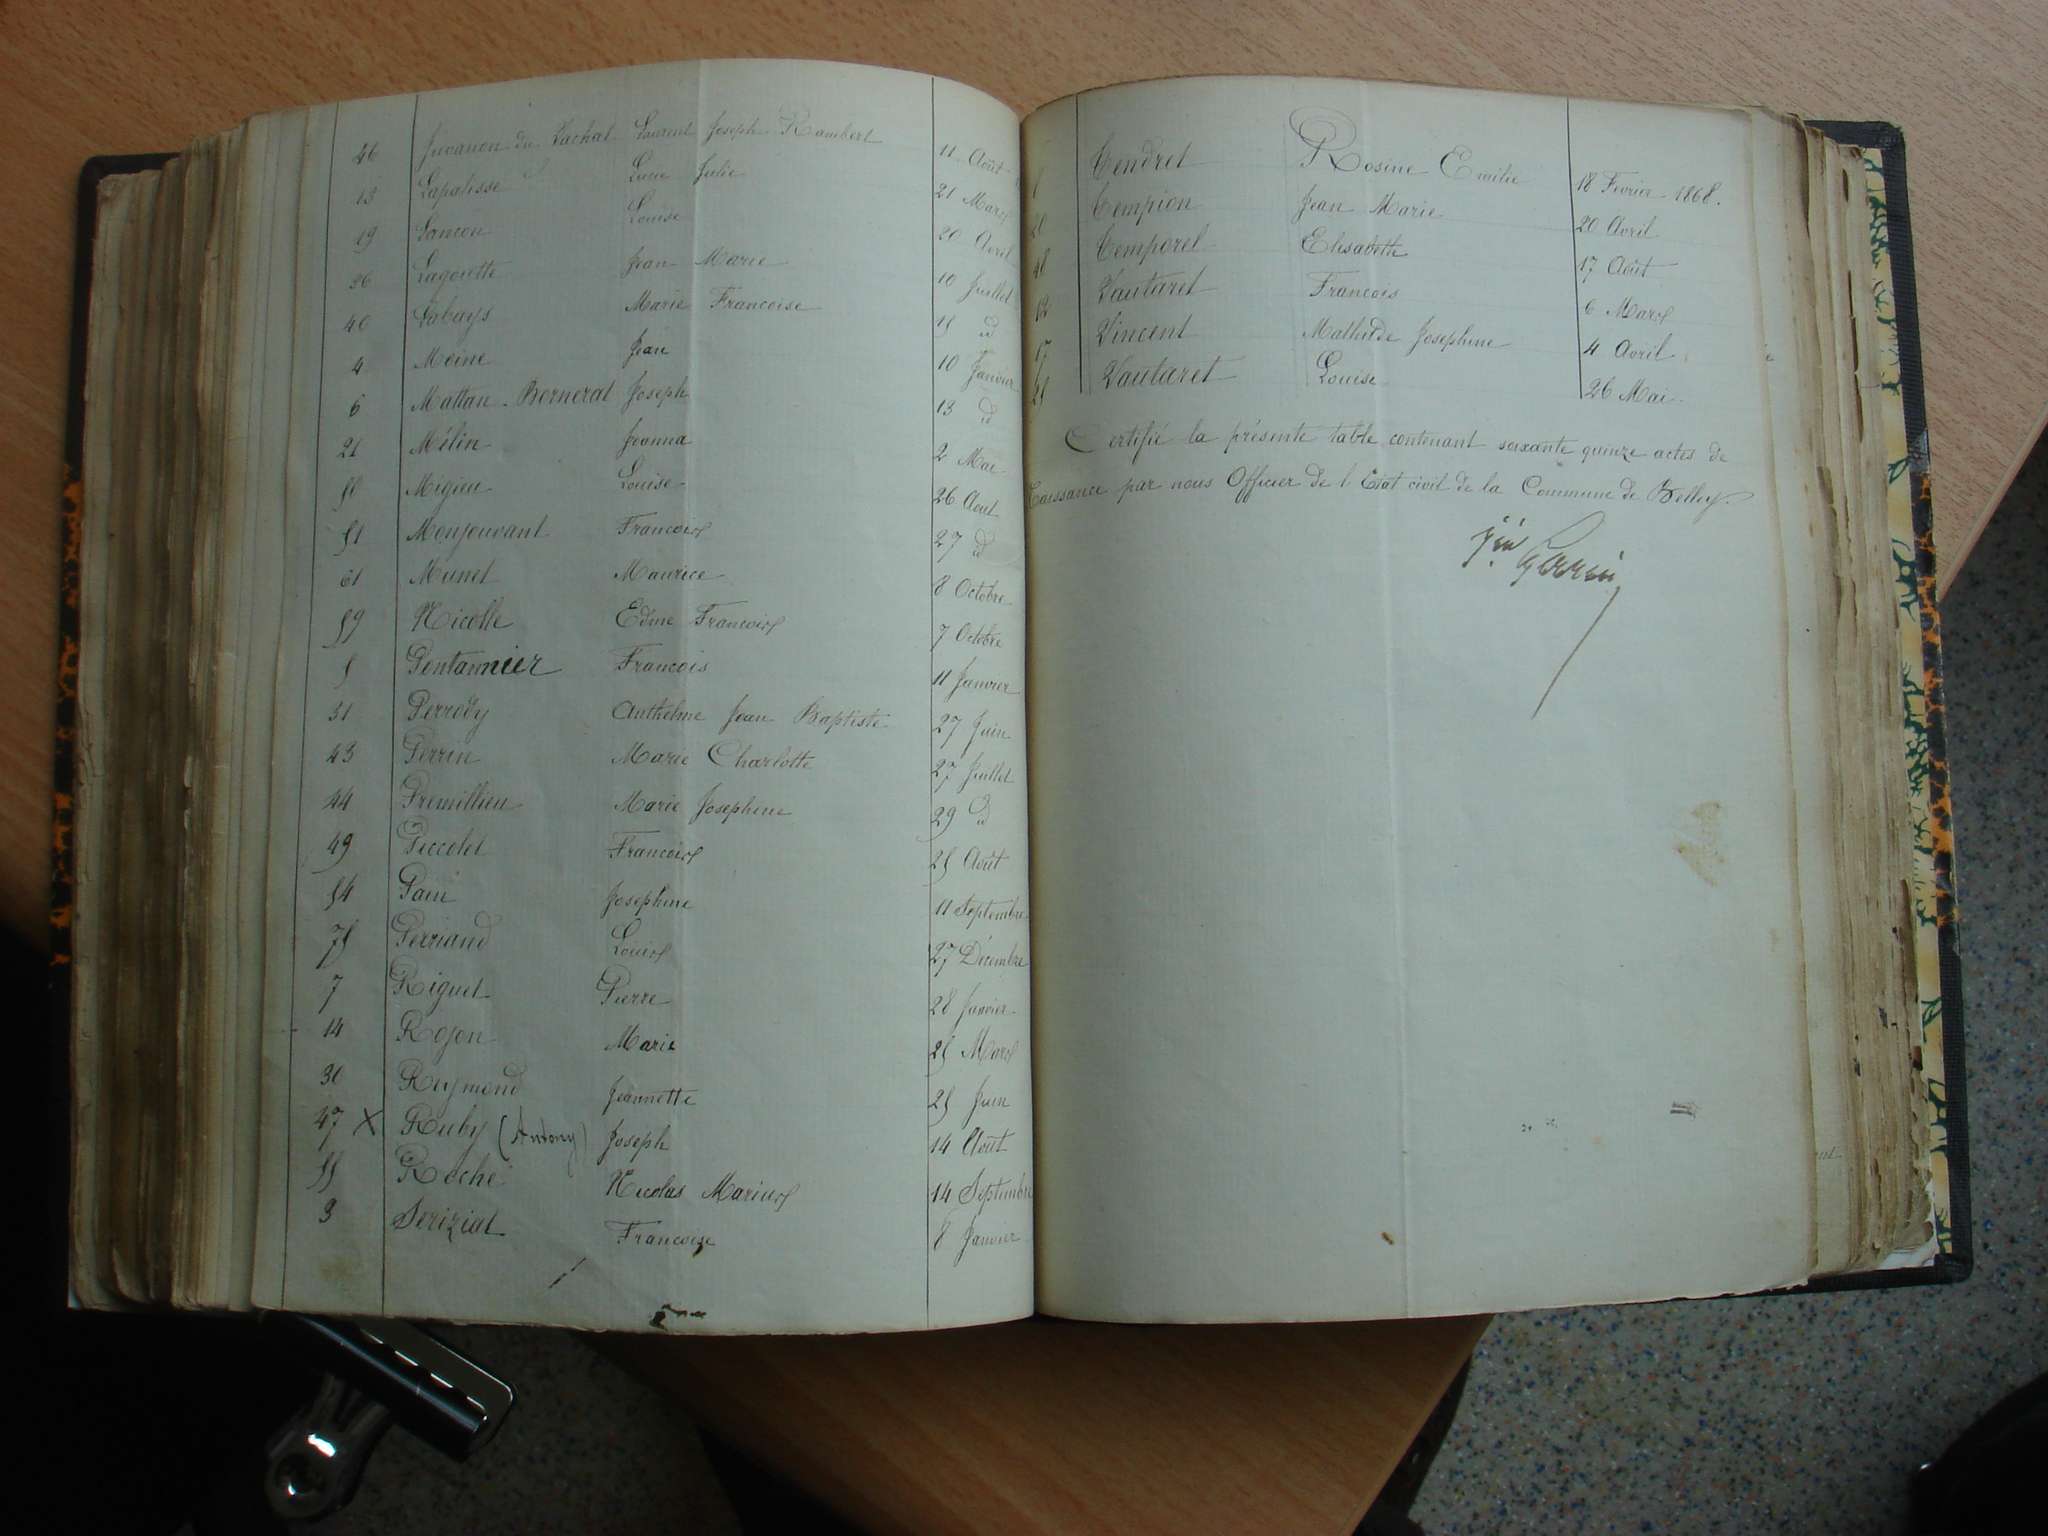 46 Juvanon du Vachat Laurent Joseph Rambert 11 Août
13 Lapalisse Lucie Julie 21 Mars
19 Lancon Louise 20 Avril
36 Lagoutte Jean Marie 10 Juillet
40 Labays Marie Francoise 15 id
4 Moine Jean 10 Janvier
6 Mattan-Bornerat Joseph 13 id
21 Mélin Jeanna 2 Mai
50 Migieu Louise 26 Aout
51 Monjouvant Francois 27 id
61 Munet Maurice 8 Octobre
59 Nicolle Edme Francois 7 Octobre
5 Pontannier Francois 11 Janvier
31 Perrody Anthelme Jean Baptiste 27 Juin
43 Perrin Marie Charlotte 27 Juillet
44 Premillieu Marie Josephine 29 id
49 Piccolet Francois 25 Août
54 Pain Josephine 11 Septembre
75 Perriand Louis 27 Décembre
7 Riguet Pierre 28 Janvier
14 Rojon Marie 25 Mars
30 Reymond Jeannette 25 Juin
47 X Ruby (Antony) Joseph 14 Août
55 Roche Nicolas Marius 14 Septembre
3 Seriziat Francoise 8 Janvier
Tendret Rosine Emilie 18 Fevrier 1868.
20 Tempion Jean Marie 20 Avril
48 Temporel Elisabeth 17 Août
12 Vautaret Francois 6 Mars
17 Vincent Mathilde Josephine 4 Avril
25 Vautaret Louise 26 Mai
Certifié la présente table contenant soixante quinze actes de
Naissance par nous Officier de l'Etat civil de la Commune de Belley.